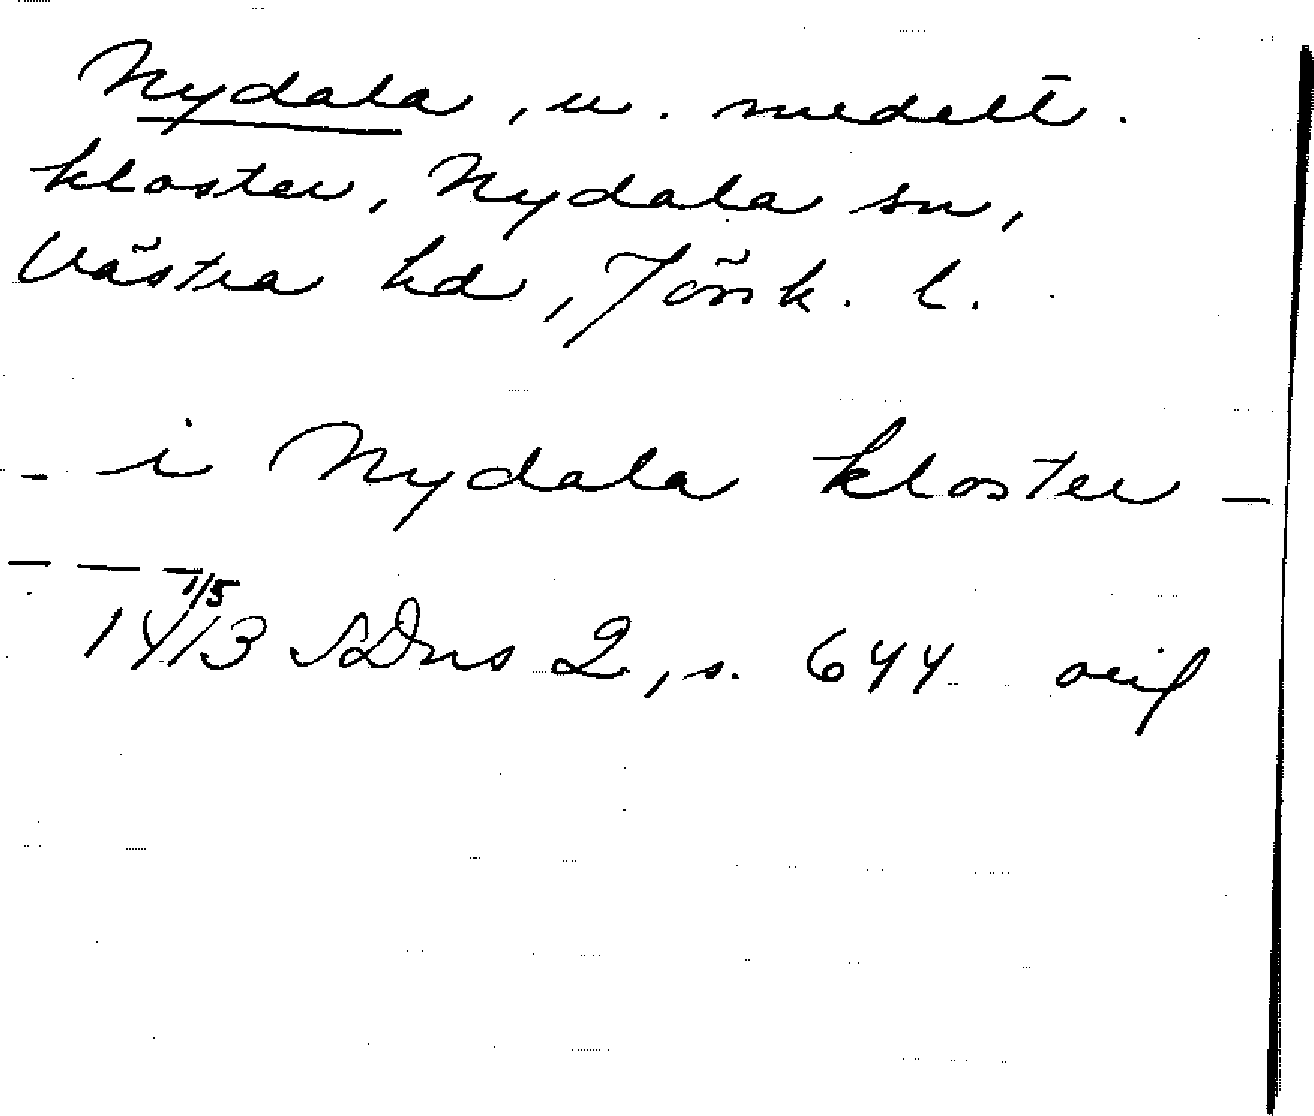 Nydala, n. medelt.
kloster, Nydala sn,
Västra hd, Jönk. l.
- i Nydala kloster -
- - -
1/5
1413 SDns 2, s. 644 orig